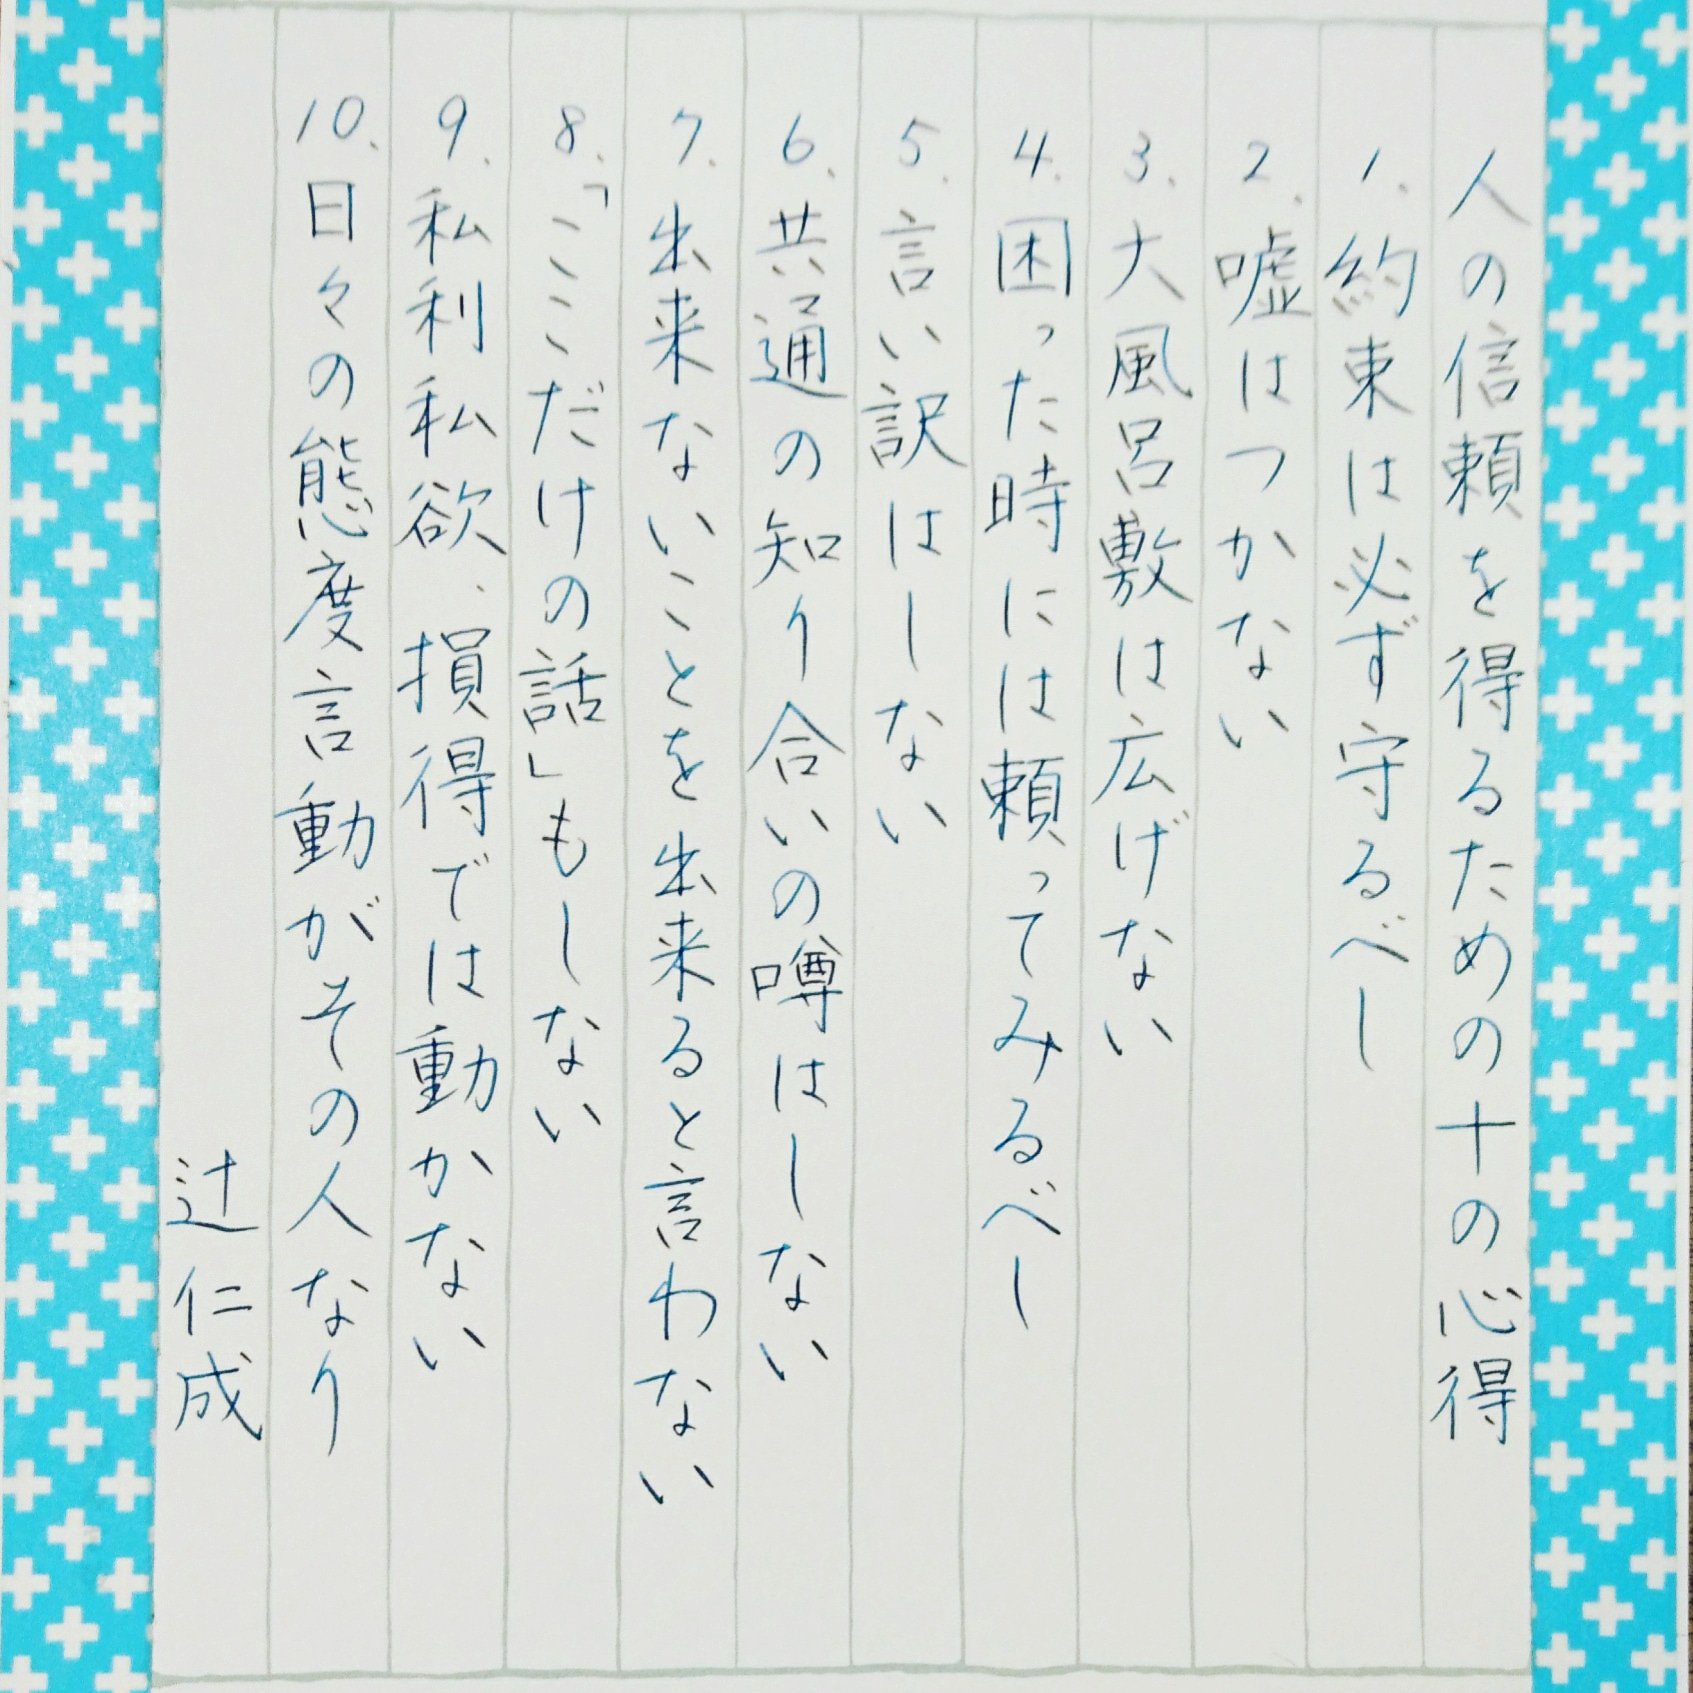 人の信頼を得るための十の心得
1.約束は必ず守るべし
2.嘘はつかない
3.大風呂敷は広げない
4.困った時には頼ってみるべし
5.言い訳はしない
6.共通の知り合いの噂はしない
7.出来ないことを出来ると言わない
8.「ここだけの話」もしない
9.私利私欲、損得では動かない
10.日々の態度言動がその人なり
辻仁成